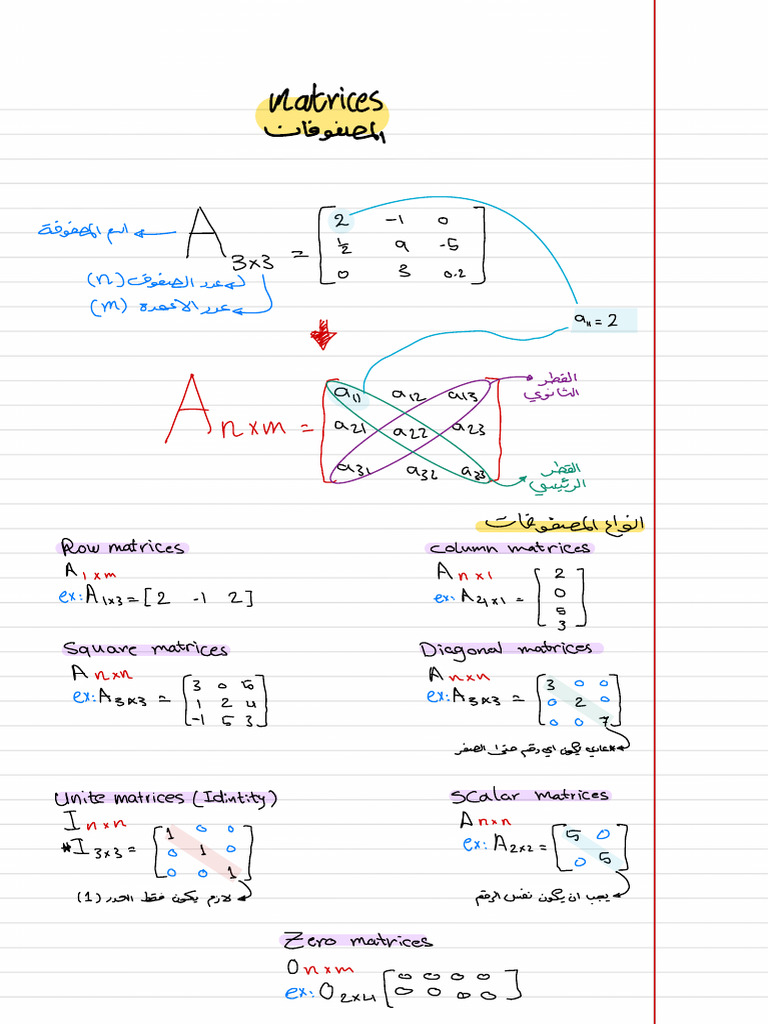 Matrices
المصفوفات
اسم المصفوفة
A 3×3 = [ 2 -1 0
½ 9 -5
0 3 0.2 ]
عدد الصفوف (n)
عدد الأعمدة (m)
a₁₁ = 2
A n×m = [ a11 a12 a13
a21 a22 a23
a31 a32 a33 ]
القطر
الثانوي
القطر
الرئيسي
انواع المصفوفات
Row matrices
A 1×m
ex: A 1×3 = [ 2 -1 2 ]
Column matrices
A n×1
ex: A 4×1 = [ 2
0
5
3 ]
Square matrices
A n×n
ex: A 3×3 = [ 3 0 5
1 2 4
-1 5 3 ]
Diagonal matrices
A n×n
ex: A 3×3 = [ 3 0 0
0 2 0
0 0 7 ]
*عادي يكون اي رقم حتى الصفر
Unite matrices (Idintity)
I n×n
# I 3×3 = [ 1 0 0
0 1 0
0 0 1 ]
لازم يكون فقط العدد (1)
Scalar matrices
A n×n
ex: A 2×2 = [ 5 0
0 5 ]
يجب ان يكون نفس الرقم
Zero matrices
0 n×m
ex: 0 2×4 [ 0 0 0 0
0 0 0 0 ]